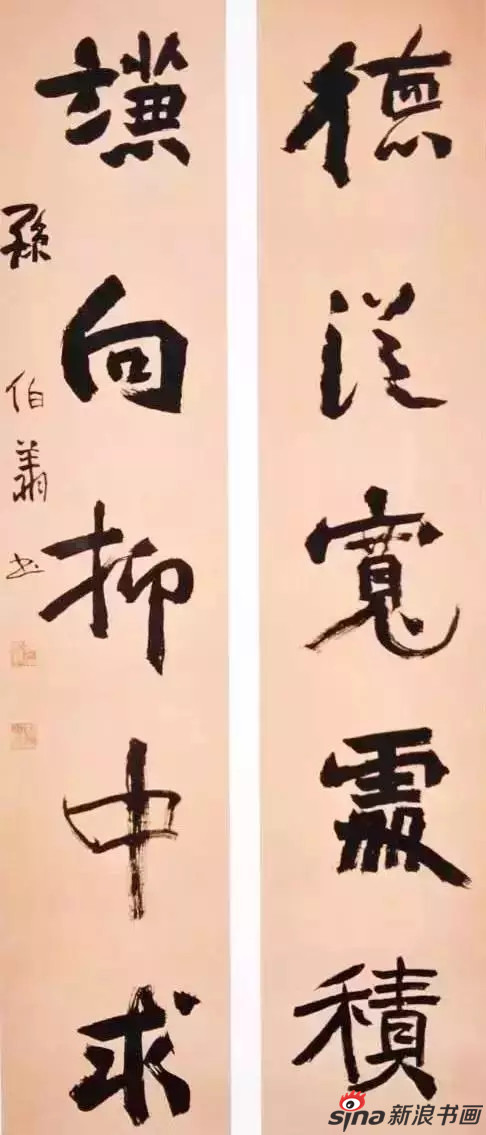 德從寬處積
謙向抑中求
孫伯翔書
sina新浪书画